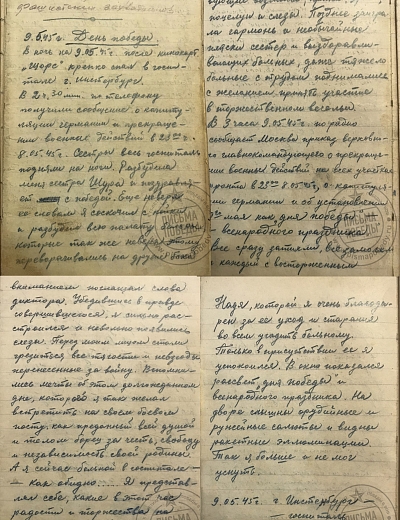 фашистскими захватчиками.
9.5.45г. День победы
В ночь на 9.05.45г. после кинокарт.
"Щорс" крепко спал в госпи-
тале г. Инстербурга.
В 2ч. 30 мин. по телефону
получили сообщение о капиту-
ляции германии и прекраще-
нии военных действий в 23 00
8.05.45г. Сестры весь госпиталь
подняли на ноги. Разбудила
меня сестра Шура и поздравля-
ет с победой. Еще не веря
ее словам я соскочил с койки
и разбудил всю палату
которые так же не веря этому
переворачивались на другой бок
поцелуи и слезы. Позднее заигра-
ла гармонь и необычайные
пляски сестер и выздоравли-
вающих больных, даже тяжело
больные с трудом поднимались
с желанием принять участие
в торжественном веселье.
В 3 часа 9.05.45г. по радио
сообщает Москва приказ верховно-
го главнокомандующего о прекраще-
нии военных действий на всех участках
фронта в 23 00 8.05.45г. о капитуля-
ции германии и об установлении
9го мая как дня победы
всенародного праздника.
Все сразу затихли, все замолкли
каждый с восторженным
вниманием поглощал слова
диктора. Убедившись в правде
совершившегося, я сильно рас-
строился и невольно появились
слезы. Перед моим лицом стали
трудности все тяготы и невзгоды
перенесенные за войну. Вспомина-
лись мечты об этом долгожданном
дне, который я так желал
встретить на своем боевом
посту, как преданный всей душой
и телом борец за честь, свободу
и независимость своей родины.
А я сейчас больной в госпитале —
— как обидно... Я представ-
лял себе, какие в этот час
радости и торжества на
Надя, которой я очень благода-
рен за ее уход и старания
во всем угодить больному.
Только в присутствии ее я
успокоился. В окно показался
рассвет дня победы и
всенародного праздника. На
дворе слышны орудийные и
ружейные салюты и видны
ракетные эллюминации.
Так я больше и не мог
уснуть.
9.05.45г. г. Инстербург —
— госпиталь